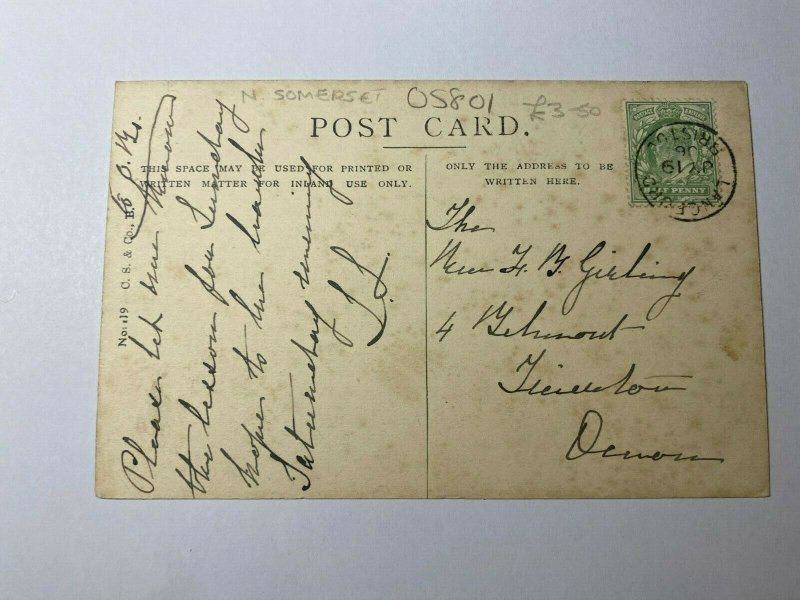 N. SOMERSET OS801 £3-50
POST CARD.
THIS SPACE MAY BE USED FOR PRINTED OR
WRITTEN MATTER FOR INLAND USE ONLY.
ONLY THE ADDRESS TO BE
WRITTEN HERE.
No. 119 C. S. & Co., B.
Please let me know
the lesson for Sunday
hope to be back
Saturday evening
J. L.
The
Rev F. B. Girling
4 Belmont
Tiverton
Devon
LANGFORD BRISTOL
JY 19
06
HALF PENNY